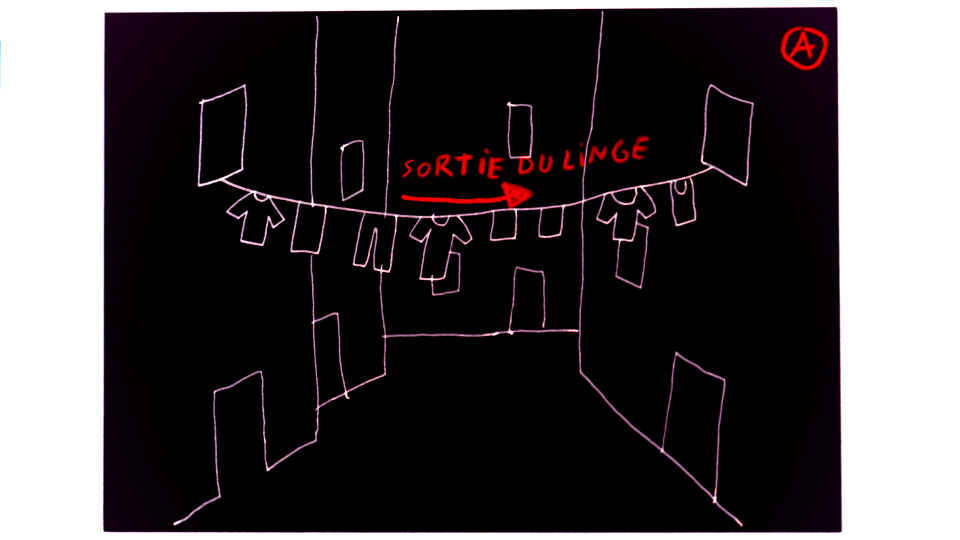 A
SORTIE DU LINGE